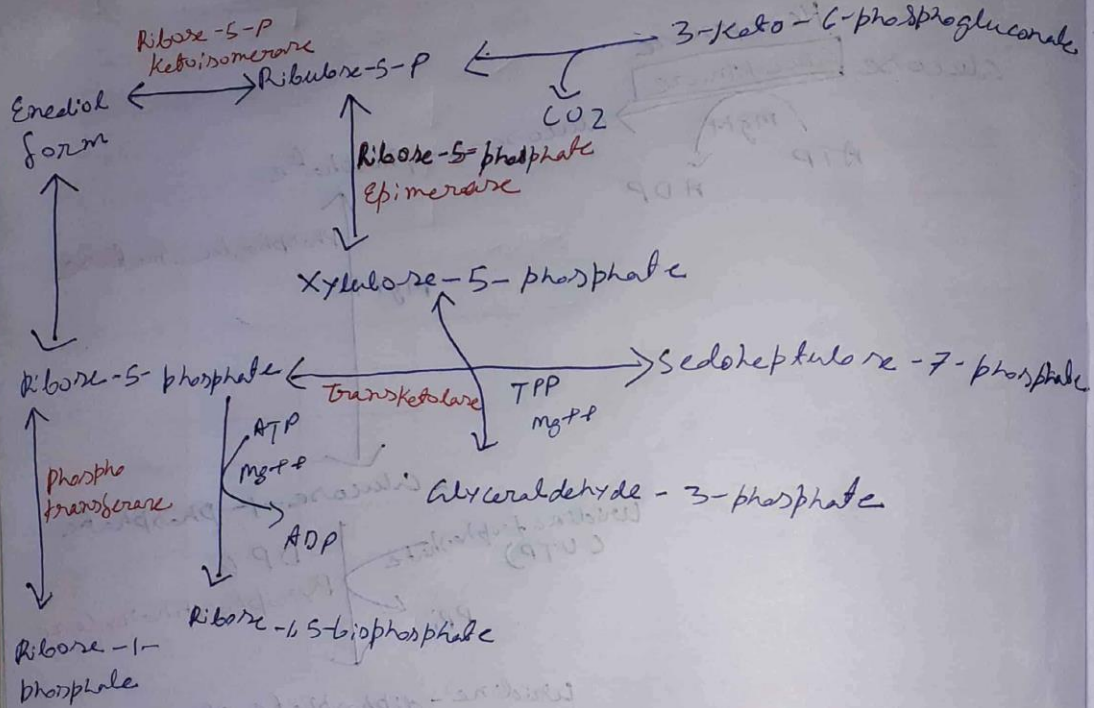 Ribose-5-P
Ketoisomerase
3-Keto-6-phosphogluconate
Ribulose-5-P
Enediol
form
CO2
Ribose-5-phosphate
Epimerase
Xylulose-5-phosphate
Ribose-5-phosphate
Transketolase
TPP
Mg++
Sedoheptulose-7-phosphate
ATP
Mg++
ADP
Phospho
transferase
Glyceraldehyde-3-phosphate
Ribose-1,5-biophosphate
Ribose-1-
phosphate